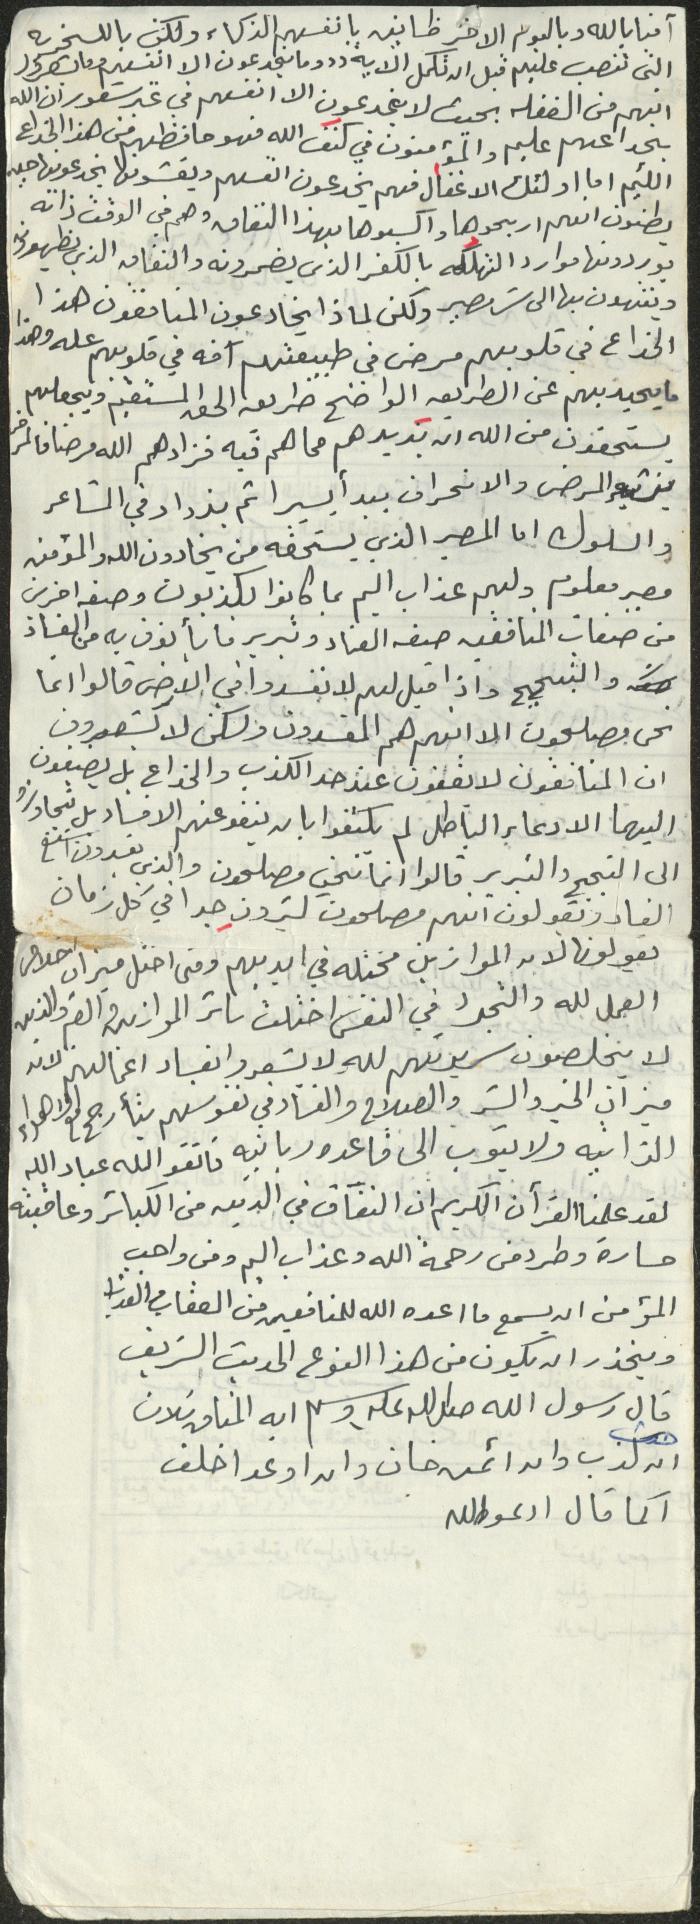 آمنا بالله وباليوم الاخر ظانين بانفسهم الذكاء ولكن ياللسخرية
التى تنصب عليهم قبل ان تكمل الاية ددوما يخدعون الا انفسهم وما يشعرون
انهم من الغفلة بحيث لا يخدعون الا انفسهم في غير شعور ان الله
بخداعهم عليم والمؤمنون في كنف الله فهو حافظهم من هذا الخداع
اللئيم اما اولئك الاغفال فهم يخدعون انفسهم ويغشونها يخدعونها حين
يظنون انهم اربحوها واكسبوها بهذا النفاق وهم في الوقت ذاته
يوردونها موارد التهلكه بالكفر الذى يضمرونه والنفاق الذي يظهرونه
وينتهون بها الى شر مصير ولكن لماذا يخادعون المنافقون هذا
الخداع في قلوبهم مرض في طبيعتهم آفه في قلوبهم عله وهذا
ما يحيد بهم عن الطريق الواضح طريق الحق المستقيم ويجعلهم
يستحقون من الله ان يزيدهم مما هم فيه فزادهم الله مرضا فالمرض
ينشئ المرض والانحراف يبدأ يسيرا ثم يزداد في المشاعر
والسلوك اما المصير الذي يستحقه من يخادون الله والمؤمنين
مصير معلوم ولهم عذاب اليم بما كانوا يكذبون وصفه اخرى
من صفات المنافقين صفه العناد وتبرير ما يأتون به من الفساد
والتبجح واذا قيل لهم لا تفسدوا في الارض قالوا انما
نحن مصلحون الا انهم هم المفسدون ولكن لا يشعرون
ان المنافقون لا يقفون عند حد الكذب والخداع بل يضيفون
اليهما الادعاء الباطل لم يكتفوا بان ينفو عنهم الافساد بل تجاوزو
الى التبجح والتبرير قالوا انما نحن مصلحون والذين يفسدون اشنع
الفساد ويقولون انهم مصلحون كثيرون جدا في كل زمان
يقولونها لان الموازين مختله في ايديهم ومتى اختل ميزان اخلاص
العمل لله والتجرد في النفس اختلت سائر الموازين والقيم والذين
لا يخلصون سريرتهم لله لا يشعروا بفساد اعمالهم لان
ميزان الخير والشر والصلاح والفساد في نفوسهم يتأرجح مع الاهواء
الذاتيه ولا يتوب الى قاعده ربانيه فاتقو الله عباد الله
لقد علمنا القرأن الكريم ان النفاق في الدين من الكبائر وعاقبته
خسارة وطرد من رحمة الله وعذاب اليم ومن واجب
المؤمن ان يسمع ما اعده الله للمنافقين من العقاب والعذاب
ويحذر ان يكون من هذا النوع الحديث الشريف
قال رسول الله صلى الله عليه وسلم ايه المنافق ثلاث
حدث
ان كذب وان ائتمن خان وان اوعد اخلف
اكما قال ادعوا الله